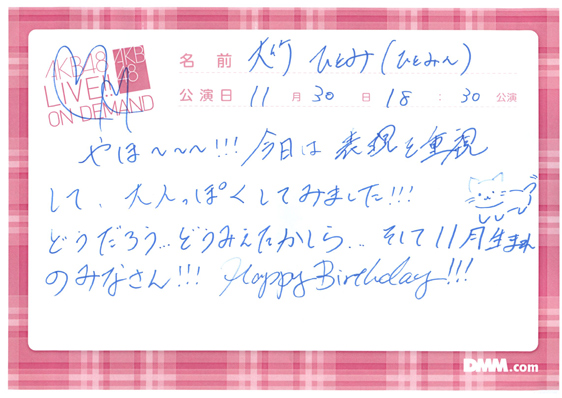 AKB48
LIVE!!
ON DEMAND
AKB
48
名 前 大竹 ひとみ(ひとみん)
公演日 11 月 30 日 18 : 30 公演
やほ〜〜〜!!! 今日は 表現を重視
して、大人っぽくしてみました!!!
どうだろう… どうみえたかしら… そして11月生まれ
のみなさん!!! Happy Birthday!!!
DMM.com